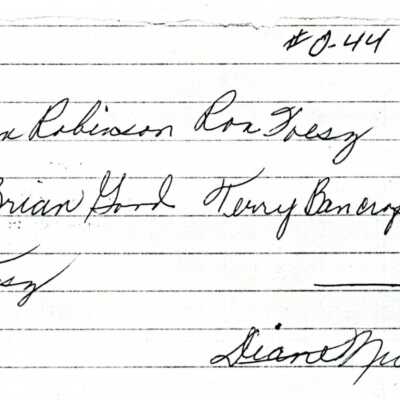 #0-44
Robinson Ron Toesz
Brian Good Terry Bancrof
Diane